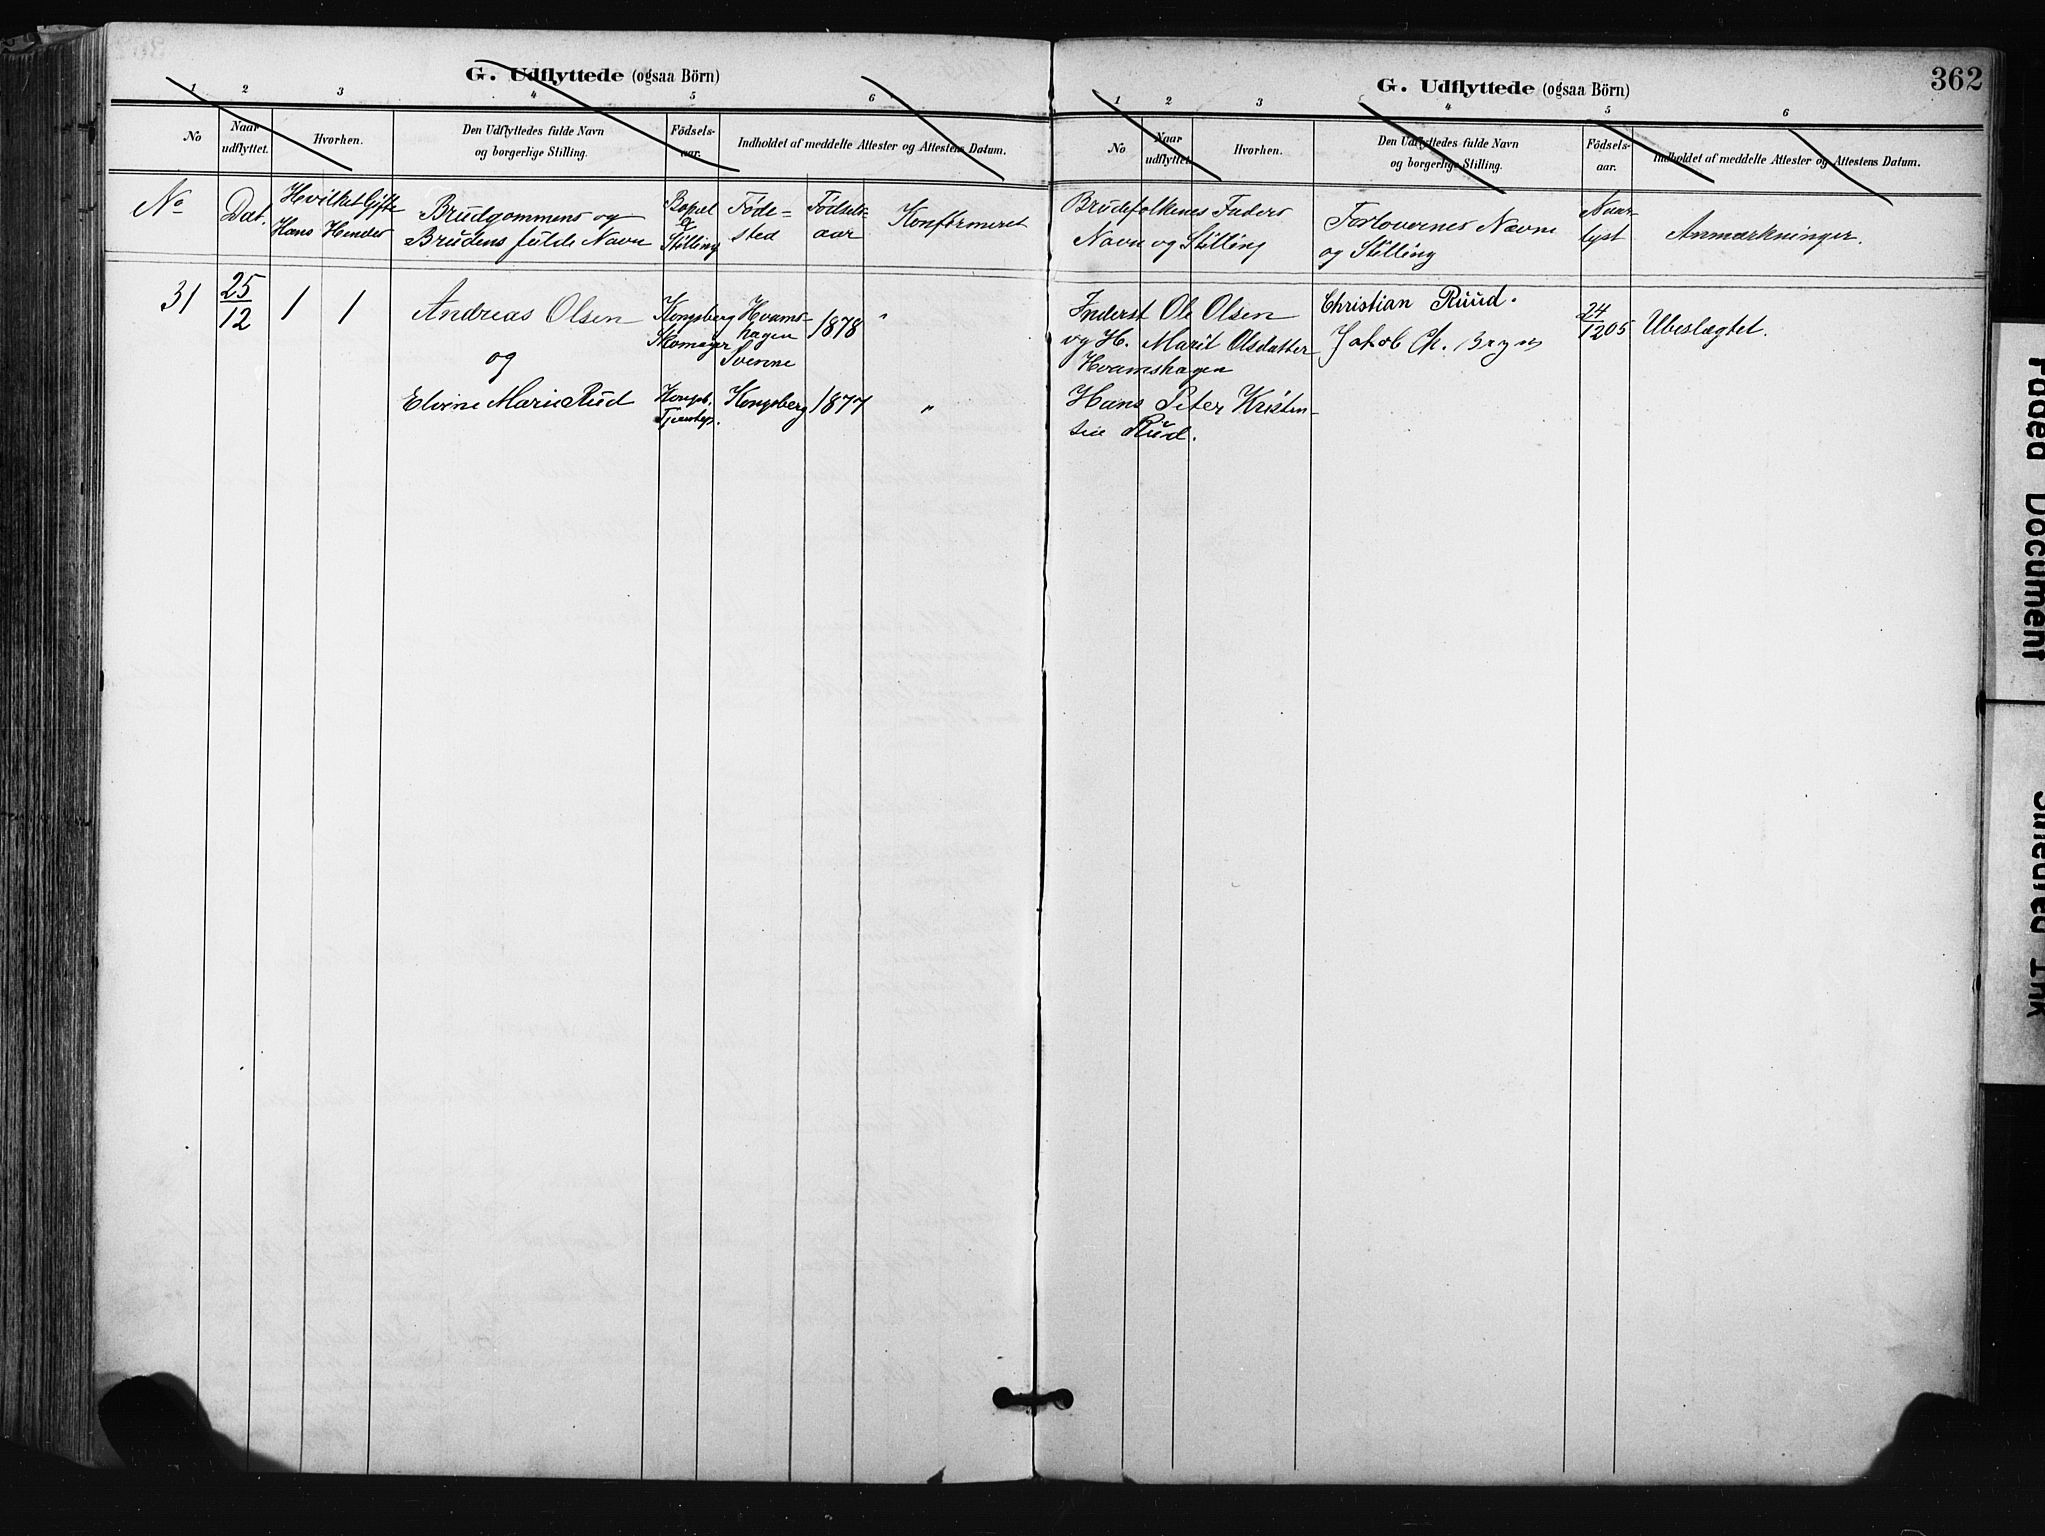 G. Udflyttede (ogsaa Börn)
1 2 3 4 5 6
No
Naar udflyttet.
Hvorhen.
Den Udflyttedes fulde Navn
og borgerlige Stilling.
Födsels-
aar.
Indholdet af meddelte Attester og Attestens Datum.
No
Dat.
Hvilket Gifte
Hans Hendes
Brudgommens og
Brudens fulde Navn
Bopæl
&
Stilling
Føde=
sted
Födsels-
aar
Konfirmeret
31
25
12
1
1
Andreas Olsen
Kongsberg
Skomager
Hvams-
hagen
Svenne
1878
"
og
Elvine Marie Rud
Kongsb.
Kongsberg
1877
"
362
G. Udflyttede (ogsaa Börn)
1 2 3 4 5 6
No
Naar
udflyttet.
Hvorhen.
Den Udflyttedes fulde Navn
og borgerlige Stilling.
Födsels-
aar.
Indholdet af meddelte Attester og Attestens Datum.
Brudefolkenes Faders
Navn og Stilling
Forlovernes Navne
og Stilling
Naar
lyst
Anmærkninger.
Inderst Ole Olsen
og H. Marit Olsdatter
Hvamshagen
Christian Ruud.
Jakob Ch. Bryn
24
12 05
Ubeslægtet.
Hans Peter Kristen-
sen Rud.
Faded Document
Smeared Ink